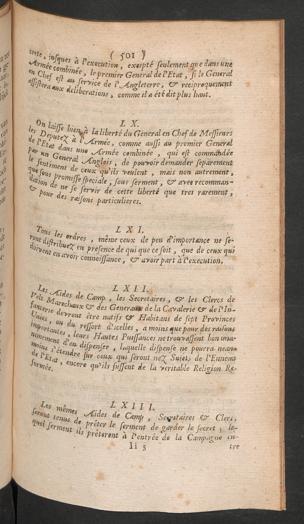 ( 501 )
crete, jusques à l'execution, excepté seulement que dans une
Armée combinée, le premier General de l'Etat, si le General
en Chef est au service de l'Angleterre, & reciproquement
assistera aux deliberations, comme il a été dit plus haut.
LX.
On laisse bien à la liberté du General en Chef de Messieurs
les Deputez à l'Armée, comme aussi au premier General
de l'Etat dans une Armée combinée, qui est commandée
par un General Anglois, de pouvoir demander separement
le sentiment de ceux qu'ils veulent, mais non autrement,
que sous promesse speciale, sous serment, & avec recomman-
dation de ne se servir de cette liberté que tres rarement,
& pour des raisons particulieres.
LXI.
Tous les ordres, même ceux de peu d'importance ne se-
ront distribuez en presence de qui que ce soit, que de ceux qui
doivent en avoir connoissance, & avoir part à l'execution.
LXII.
Les Aides de Camp, les Secretaires, & les Clercs de
Velt Marechaux & des Generaux de la Cavalerie & de l'In-
fanterie devront être natifs & Habitans de sept Provinces
Unies, ou du ressort d'icelles, a moins que pour des raisons
importantes, leurs Hautes Puissances ne trouvassent bon unani-
mement d'en dispenser, laquelle dispense ne pourra neant-
moins s'étendre sur ceux qui seront nez Sujets de l'Ennemi
de l'Etat, encore qu'ils fussent de la veritable Religion Re-
formée.
LXIII.
Les mêmes Aides de Camp, Secretaires & Clercs,
seront tenus de prêter le serment de garder le secret, le-
quel serment ils prêteront à l'entrée de la Campagne en-
Ii 5 tre